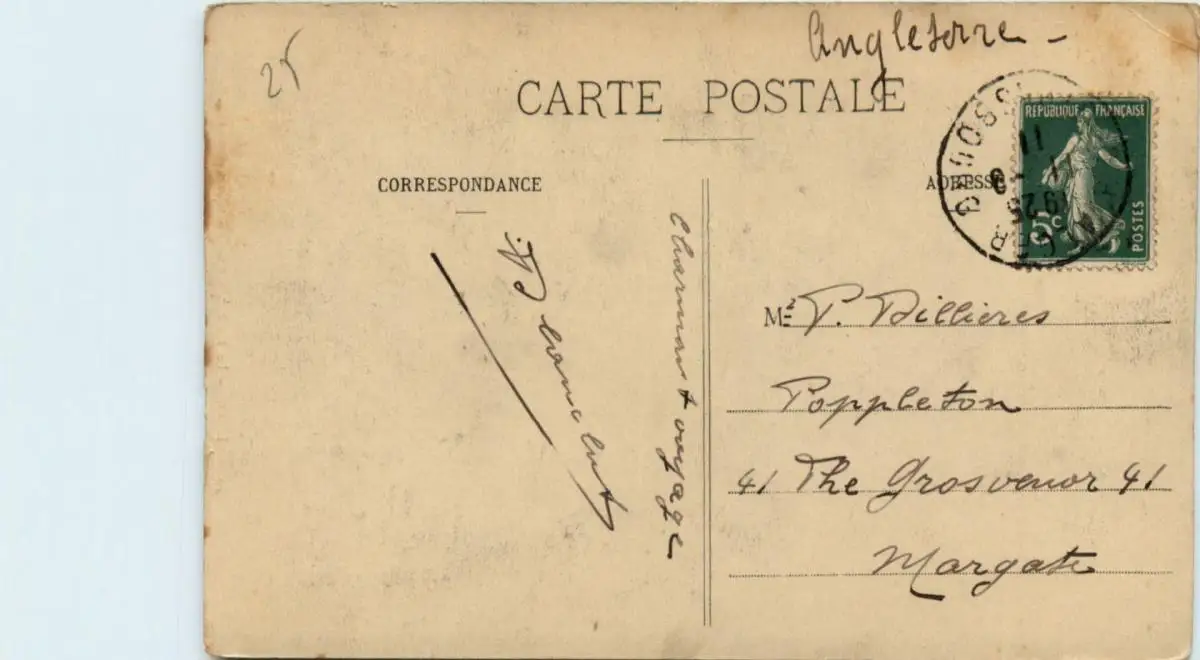 25
Angleterre -
CARTE POSTALE
CORRESPONDANCE
ADRESSE
REPUBLIQUE FRANÇAISE
5c
POSTES
11
19 25
Charmant voyage
M P. Dillières
Poppleton
41 The Grosvenor 41
Margate